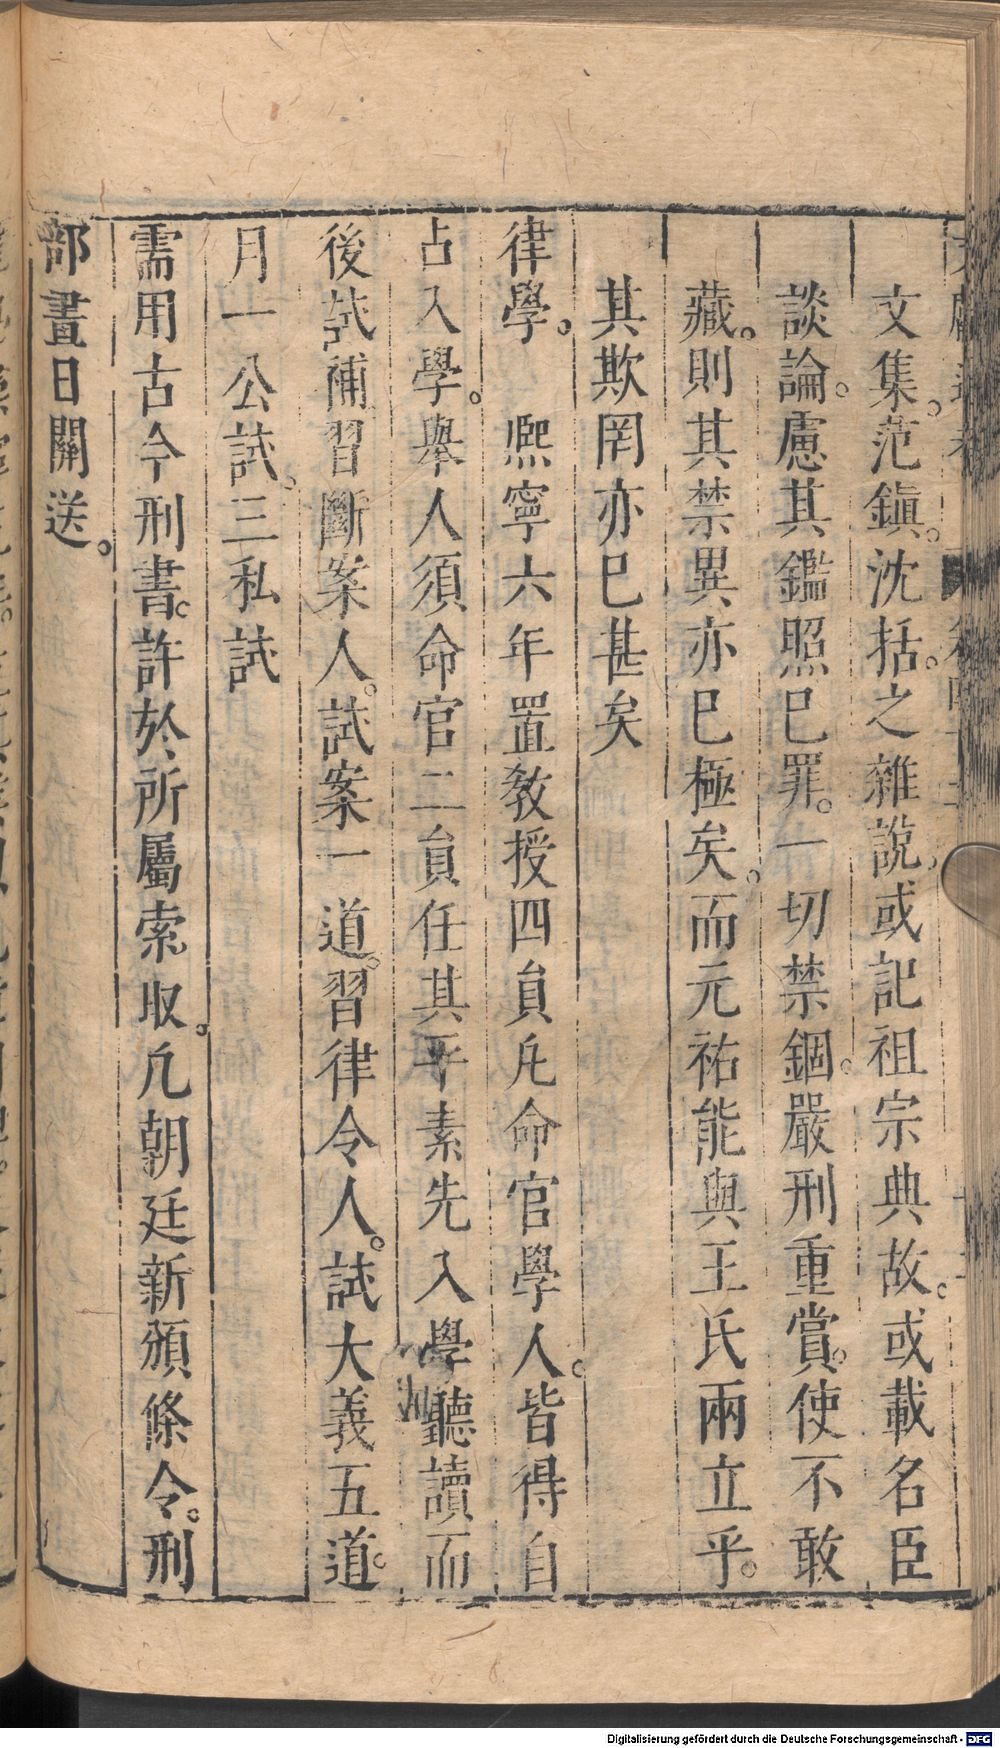 文集。范鎮。沈括。之雜說。或記祖宗典故。或載名臣
談論。慮其鑑照巳罪。一切禁錮。嚴刑重賞。使不敢
藏。則其禁異亦巳極矣。而元祐能與王氏兩立乎。
其欺罔亦巳甚矣
律學。 熙寧六年置敎授四員凡命官學人。皆得自
占入學。舉人須命官二員任其平素先入學聽讀而
後試補習斷案人。試案一道。習律令人。試大義五道。
月一公試。三私試
需用古今刑書。許於所屬索取。凡朝廷新頒條令。刑
部晝日關送。
Digitalisierung gefördert durch die Deutsche Forschungsgemeinschaft - DFG